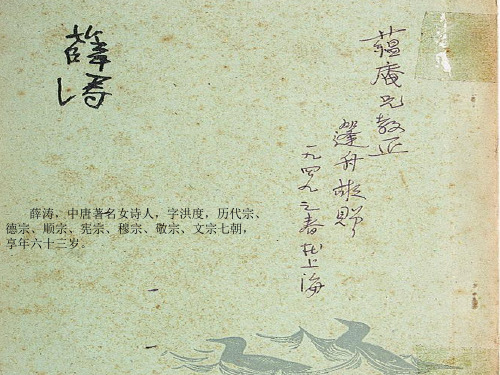 薛涛
蕴庵兄教正
蓬舟敬赠
一九四九之春於上海
薛涛，中唐著名女诗人，字洪度，历代宗、
德宗、顺宗、宪宗、穆宗、敬宗、文宗七朝，
享年六十三岁．